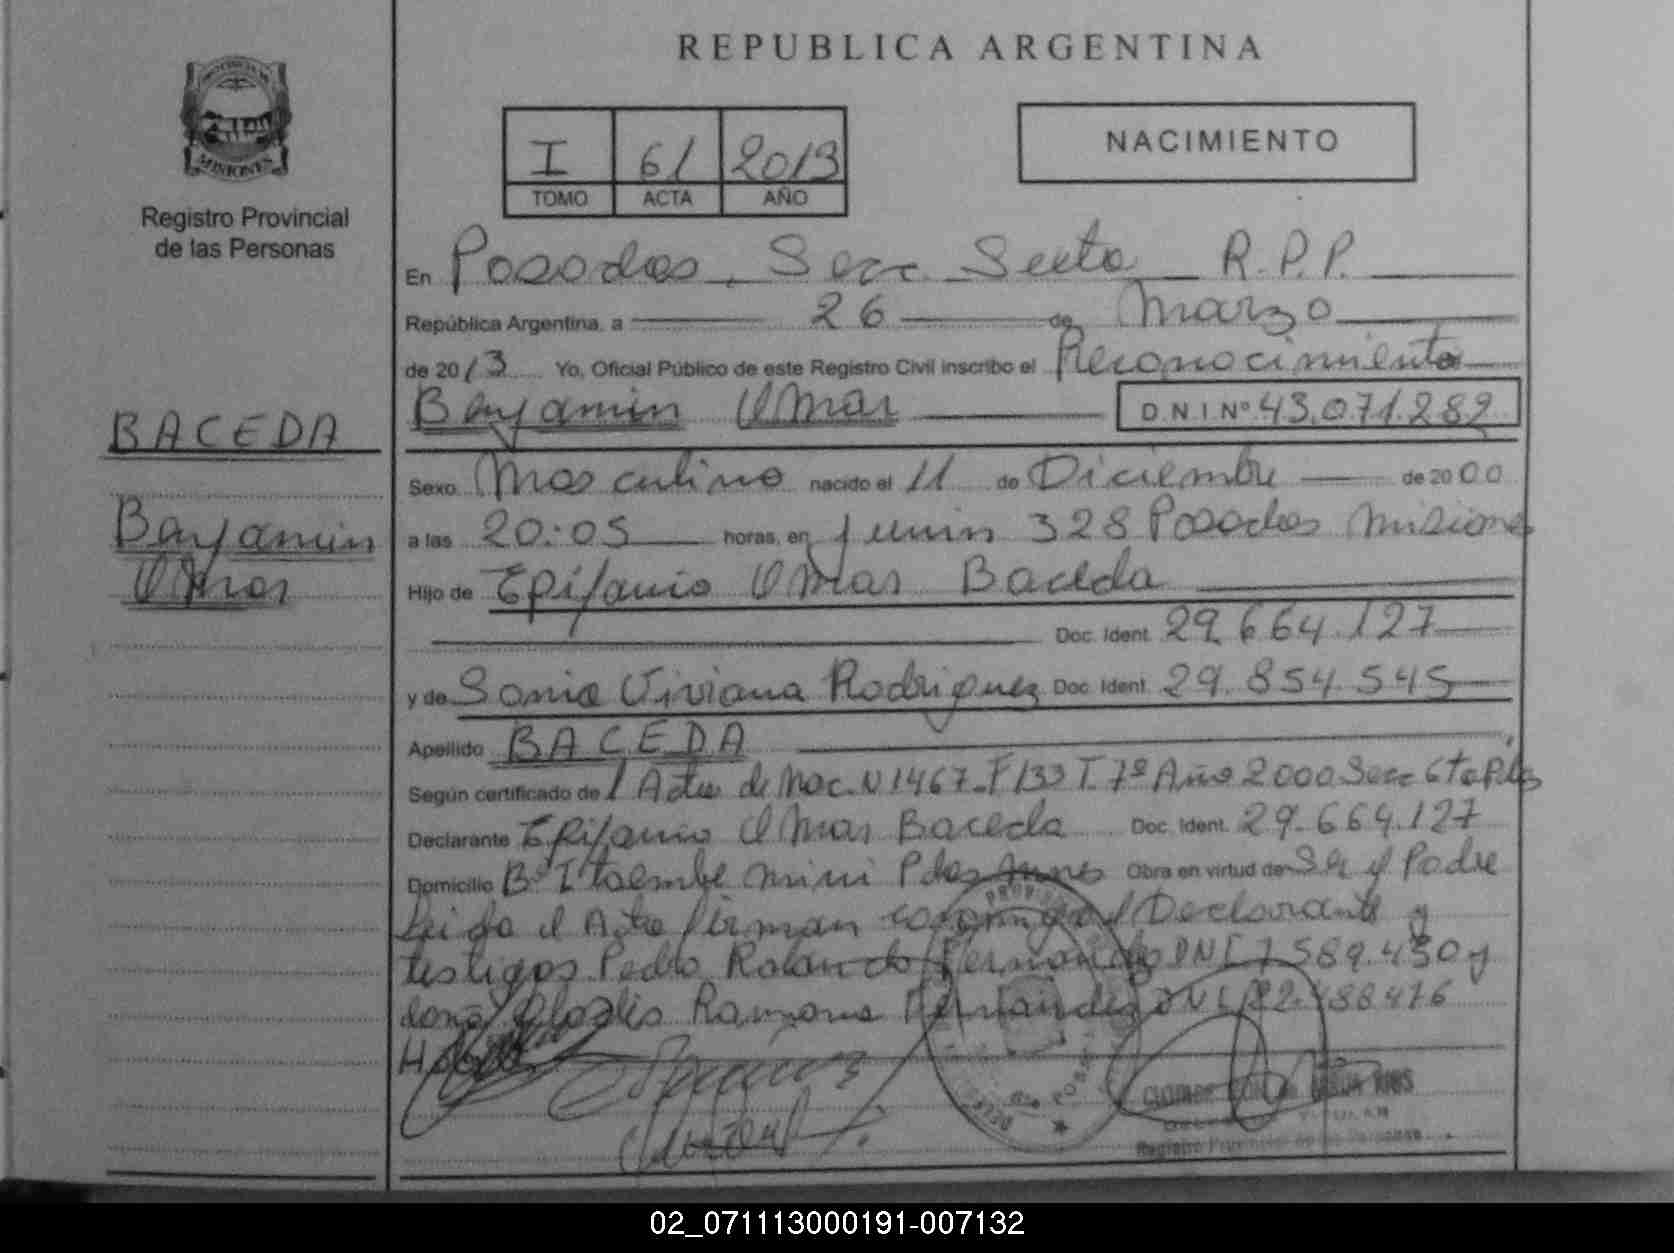 REPUBLICA ARGENTINA
MISIONES
Registro Provincial
de las Personas
I 61 2013
TOMO ACTA AÑO
NACIMIENTO
En Posadas, Secc. Sexta R.P.P.
República Argentina, a 26 de Marzo
de 2013 Yo, Oficial Público de este Registro Civil inscribo el Reconocimiento
Benjamin Omar D.N.I.Nº 43.071.282
BACEDA
Sexo Masculino nacido el 11 de Diciembre de 2000
Benjamin
Omar
a las 20:05 horas, en Junin 328 Posadas Misiones
Hijo de Epifanio Omar Baceda
Doc. Ident. 29.664.127
y de Sonia Viviana Rodriguez Doc. Ident. 29.854.545
Apellido BACEDA
Según certificado de Acta de Nac. N 1467 - F 133 T. 7º Año 2000 Secc 6ta Pdas
Declarante Epifanio Omar Baceda Doc. Ident. 29.664.127
Domicilio Bº Itaembe Mini Pdas Mnes Obra en virtud de Ser el Padre
Leida el Acta firman conmigo el Declarante y
testigos Pedro Rolando Fernandez DNI 7.589.430 y
doña Ramona Fernandez DNI
Registro Provincial de las Personas
02_071113000191-007132